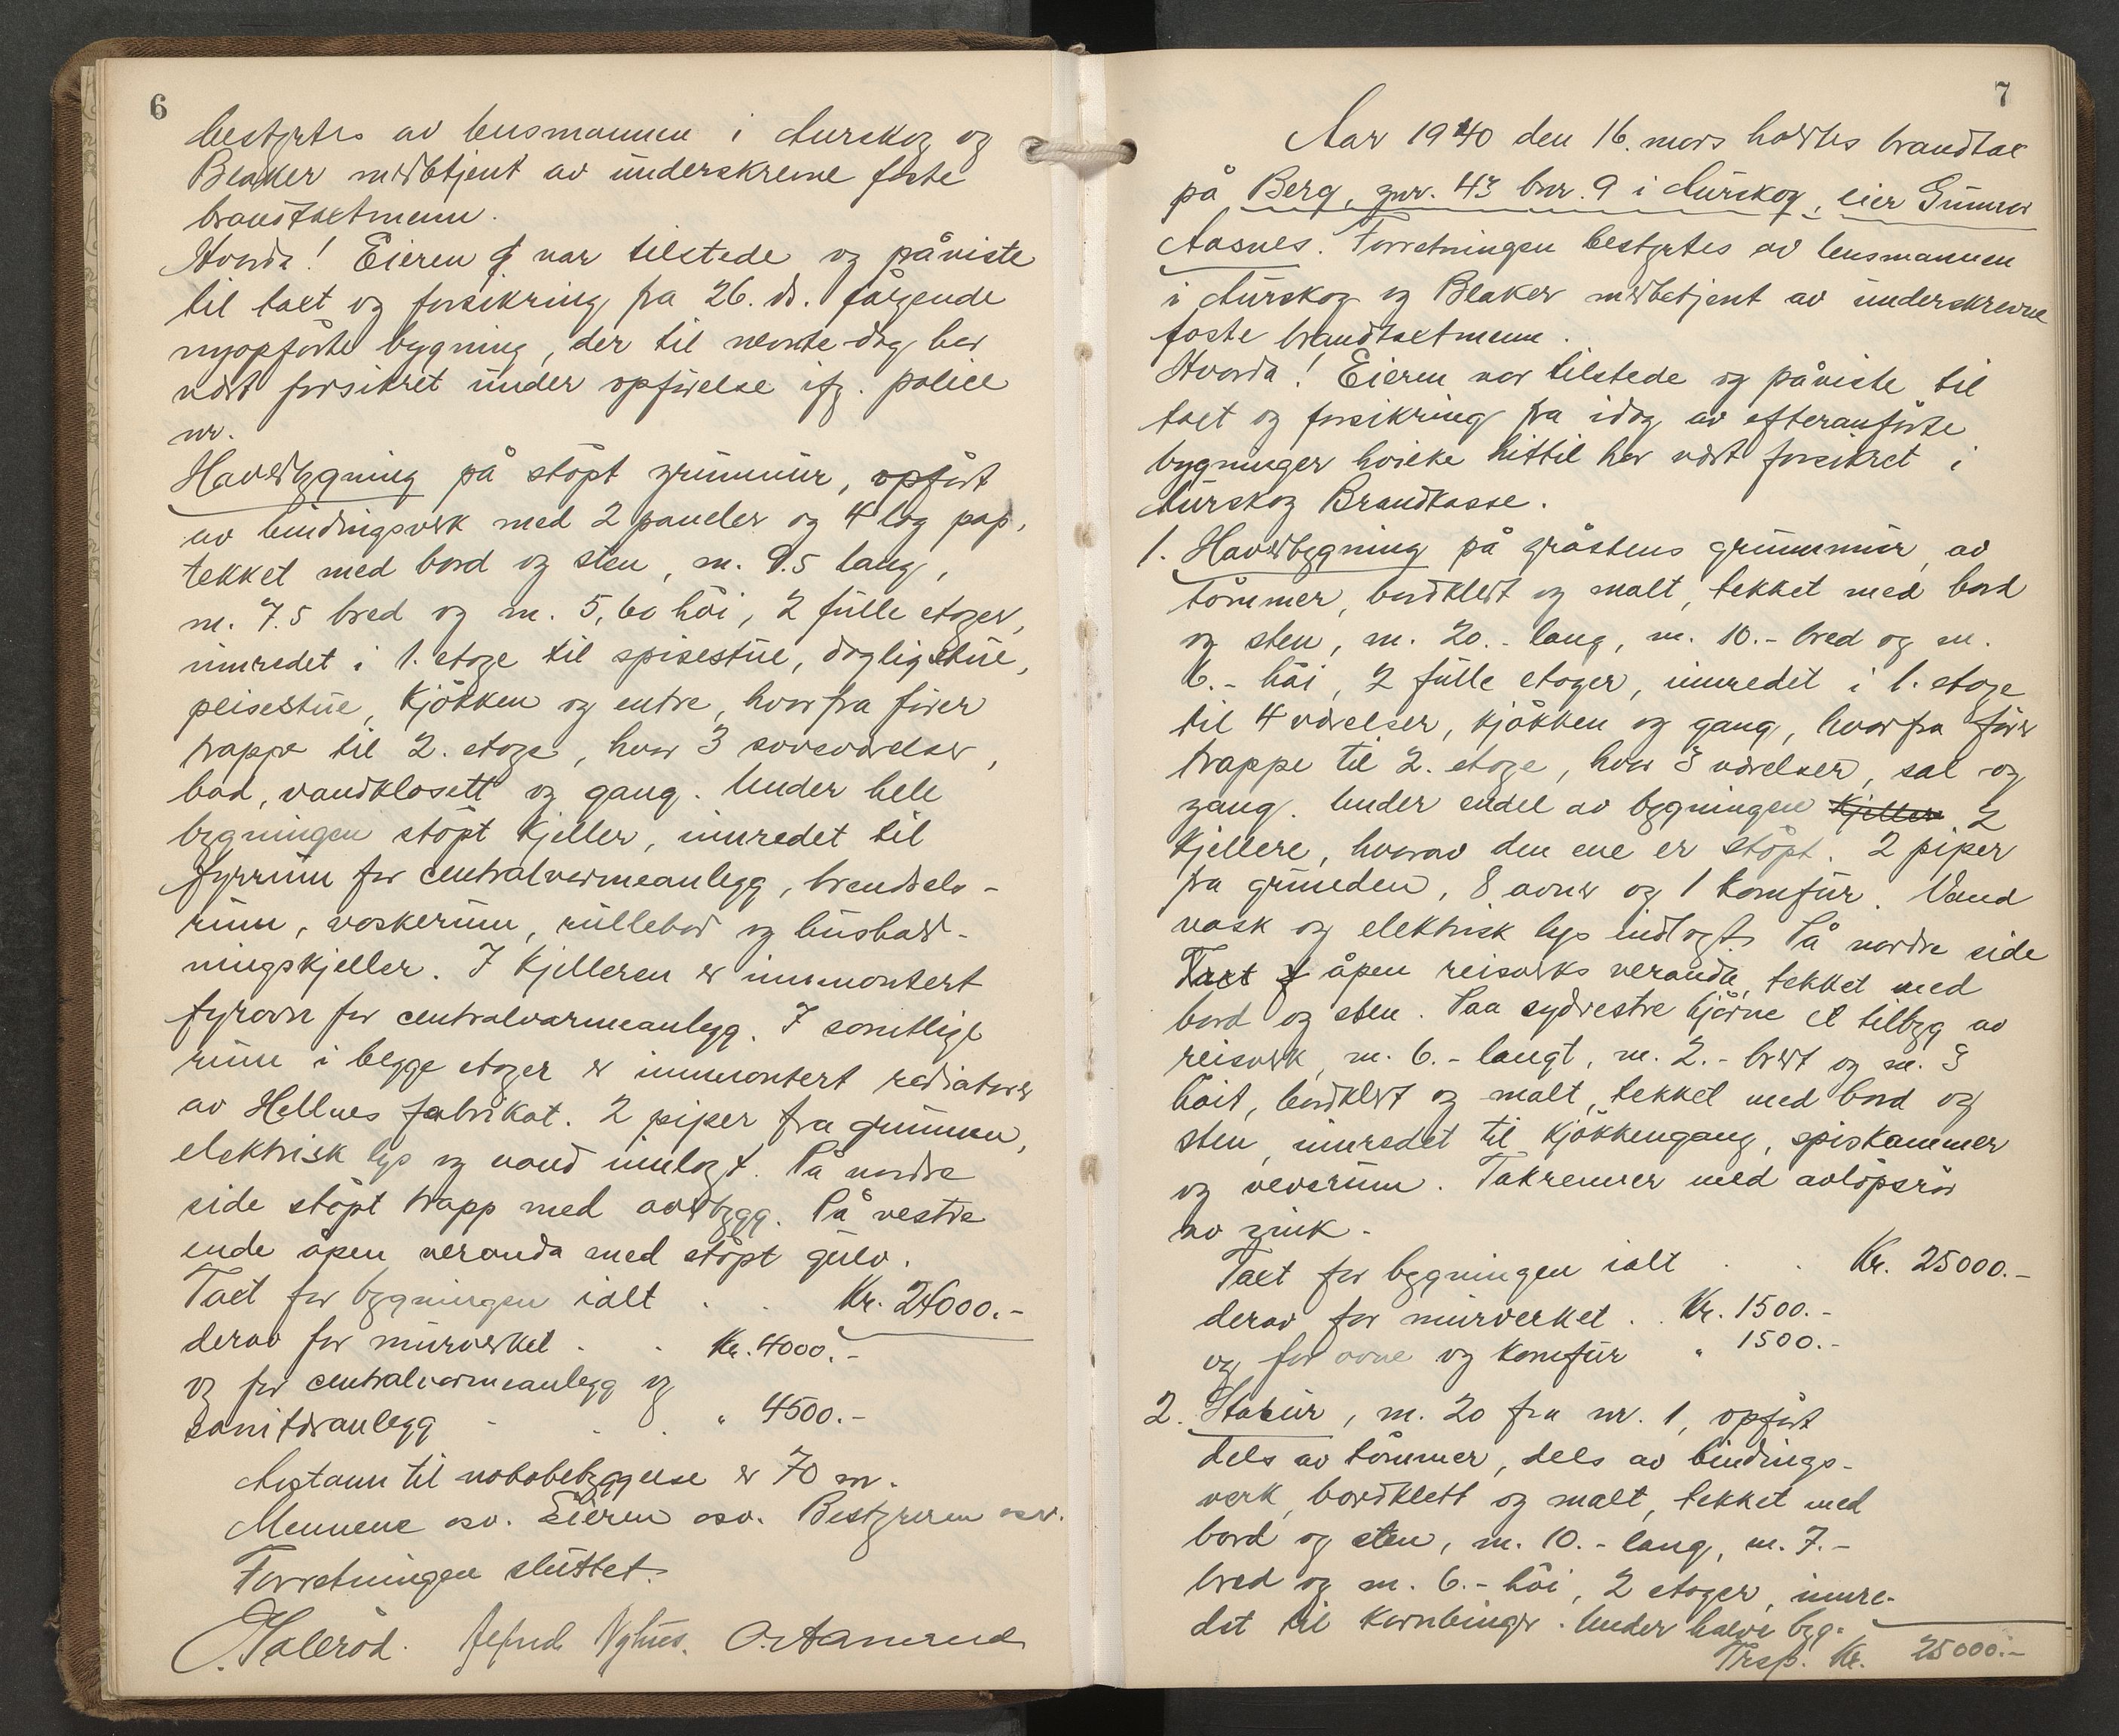 6
bestyrtes av lensmannen i Aurskog og
Blaker medbetjent av underskrevne faste
brandtaxtmenn.
Hvorda! Eieren var tilstede og påviste
til taxt og forsikring fra 26. ds. følgende
nyopførte bygning, der til nevnte dag har
vært forsikret under opførelse ifg. police
nr.
Hovedbygning på støpt grunnmur, opført
av bindingsverk med 2 paneler og 4 lag pap,
tekket med bord og sten, m. 9.5 lang,
m. 7.5 bred og m. 5,60 høi, 2 fulle etager,
innredet i 1. etage til spisestue, dagligstue,
peisestue, kjøkken og entre, hvorfra fører
trappe til 2. etage, hvor 3 soveværelser,
bad, vandklosett og gang. Under hele
bygningen støpt kjeller, innredet til
fyrrum for centralvarmeanlegg, brendsels-
rum, vaskerum, rullebod og hushold-
ningskjeller. I kjelleren er innmontert
fyrovn for centralvarmeanlegg. I samtlige
rum i begge etager er innmontert radiatorer
av Hellnes fabrikat. 2 piper fra grunnen,
elektrisk lys og vand innlagt. På nordre
side støpt trapp med overbygg. På vestre
ende åpen veranda med støpt gulv.
Taxt for bygningen ialt . . Kr. 24000.-
derav for murverket . . Kr. 4000.-
og for centralvarmeanlegg og
sanitæranlegg - . . " 4500.-
Avstann til nabobebyggelse er 70 m.
Mennene osv. Eieren osv. Bestyreren osv.
Forretningen sluttet.
Halerød. Alfred Nyhus. O. Aamerud
7
Aar 1940 den 16. mars holdtes brandtax
på Berg, gnr. 43 bnr. 9 i Aurskog, eier Gunnar
Aasnes. Forretningen bestyrtes av lensmannen
i Aurskog og Blaker medbetjent av underskrevne
faste brandtaxtmenn.
Hvorda! Eieren var tilstede og påviste til
taxt og forsikring fra idag av efteranførte
bygninger hvilke hittil har vært forsikret i
Aurskog Brandkasse.
1. Hovedbygning på gråstens grunnmur, av
tømmer, bordkledt og malt, tekket med bord
og sten, m. 20.- lang, m. 10.- bred og m.
6.- høi, 2 fulle etager, innredet i 1. etage
til 4 værelser, kjøkken og gang, hvorfra fører
trappe til 2. etage, hvor 3 værelser, sal og
gang. Under endel av bygningen kjeller 2
kjellere, hvorav den ene er støpt. 2 piper
fra grunden, 8 ovner og 1 komfur. Vand
vask og elektrisk lys indlagt. På nordre side
Taxt f åpen reisverks veranda, tekket med
bord og sten. Paa sydvestre hjørne et tilbyg av
reisverk, m. 6.- langt, m. 2.- bredt og m. 3
høit, bordkledt og malt, tekket med bord og
sten, innredet til kjøkkengang, spiskammer
og veverum. Takrenner med avløpsrør
av zink.
Taxt for bygningen ialt . . Kr. 25000.-
derav for murverket . . Kr. 1500.-
og for ovne og komfur " 1500.-
2. Stabur, m. 20 fra nr. 1, opført
dels av tømmer, dels av bindings-
verk, bordklett og malt, tekket med
bord og sten, m. 10.- lang, m. 7.-
bred og m. 6.- høi, 2 etager, innre-
det til kornbinger. Under halve byg-
Trsp. Kr. 25000.-